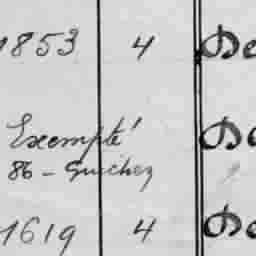 1853 4 De
Exempté Do
86 - Guichez
1619 4 Do